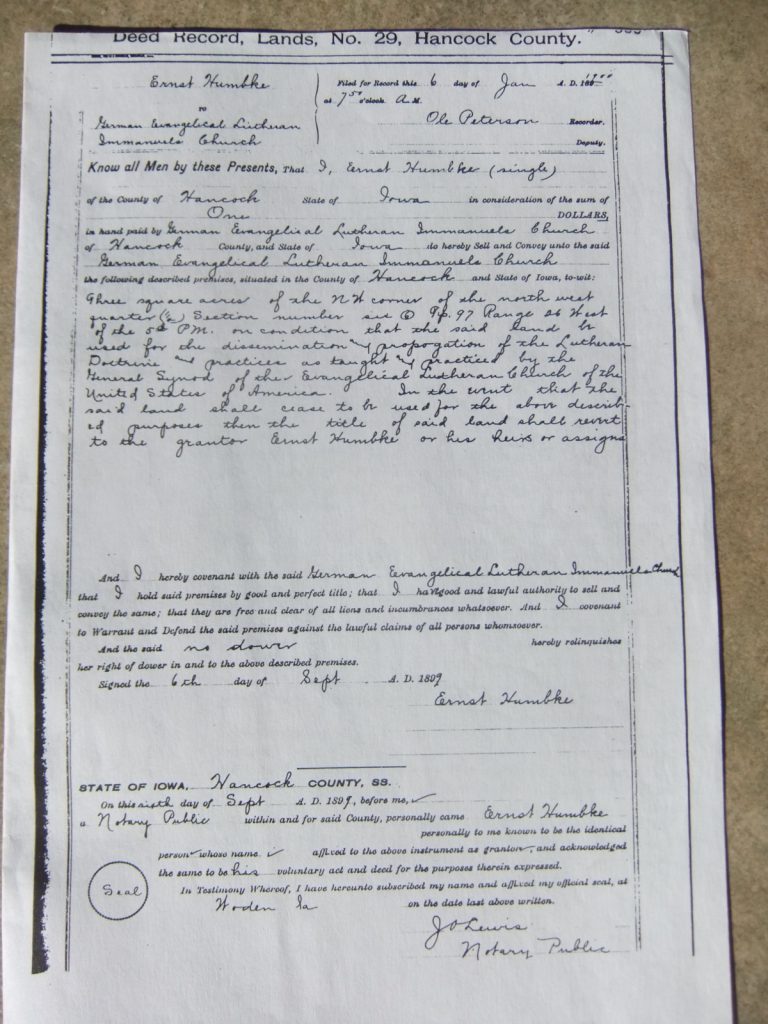 Deed Record, Lands, No. 29, Hancock County.
Ernst Humbke
TO
German Evangelical Lutheran
Immanuels Church
Filed for Record this 6 day of Jan A. D. 1900
at 7 50 o'clock A. M.
Ole Peterson Recorder.
Deputy.
Know all Men by these Presents, That I, Ernst Humbke (single)
of the County of Hancock State of Iowa in consideration of the sum of
One DOLLARS,
in hand paid by German Evangelical Lutheran Immanuels Church
of Hancock County, and State of Iowa do hereby Sell and Convey unto the said
German Evangelical Lutheran Immanuels Church
the following described premises, situated in the County of Hancock and State of Iowa, to-wit:
Three square acres of the NW corner of the north west
quarter (¼) Section number six (6) Tp. 97 Range 26 West
of the 5th P.M. on condition that the said land be
used for the dissemination and propogation of the Lutheran
Doctrine and practices as taught and practiced by the
General Synod of the Evangelical Lutheran Church of the
United States of America. In the event that the
said land shall cease to be used for the above describ-
ed purposes then the title of said land shall revert
to the grantor Ernst Humbke or his heirs or assigns
And I hereby covenant with the said German Evangelical Lutheran Immanuels Church
that I hold said premises by good and perfect title; that I have good and lawful authority to sell and
convey the same; that they are free and clear of all liens and incumbrances whatsoever. And I covenant
to Warrant and Defend the said premises against the lawful claims of all persons whomsoever.
And the said no dower hereby relinquishes
her right of dower in and to the above described premises.
Signed the 6th day of Sept A. D. 1899
Ernst Humbke
STATE OF IOWA, Hancock COUNTY, SS.
On this sixth day of Sept A. D. 1899, before me,
a Notary Public within and for said County, personally came Ernst Humbke
personally to me known to be the identical
person whose name is affixed to the above instrument as grantor, and acknowledged
the same to be his voluntary act and deed for the purposes therein expressed.
Seal
In Testimony Whereof, I have hereunto subscribed my name and affixed my official seal, at
Woden Ia on the date last above written.
J O Lewis
Notary Public